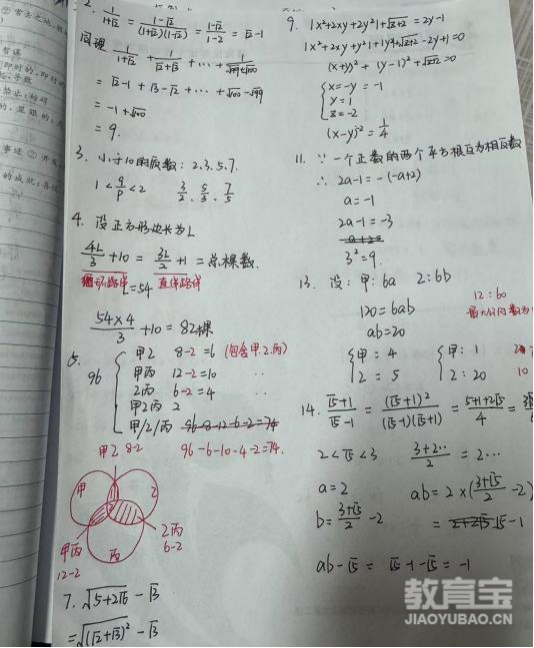 2. 1/(1+√2) = (1-√2)/((1+√2)(1-√2)) = (1-√2)/(1-2) = √2-1
同理 1/(1+√2) + 1/(√2+√3) + … + 1/(√99+√100)
= √2-1 + √3-√2 + … + √100-√99
= -1+√100
= 9.
3. 小于10的质数: 2.3.5.7.
1 < q/p < 2 3/2 , 5/3 , 7/5
4. 设正方形边长为L
4L/3 +10 = 3L/2 +1 = 总棵数.
直线路线
L=54
54×4/3 +10 = 82棵
96
甲乙 8-2=6 (包含甲.乙.丙)
甲丙 12-2=10
乙丙 6-2=4
甲乙丙 2
甲/乙/丙 96-8-12-6-2=74
96-6-10-4-2=74.
甲乙 8-2
甲
乙
丙
甲丙
12-2
乙丙
6-2
7. √(5+2√6) - √3
= √((√2+√3)²) - √3
9. |x²+2xy+2y²|+√(z+2) = 2y-1
|x²+2xy+y²|+|y²|+√(z+2)-2y+1=0
(x+y)²+ (y-1)²+√(z+2)=0
x=-y=-1
y=1
z=-2
(x-y)^z=1/4
11. ∵ 一个正数的两个平方根互为相反数
∴ 2a-1=-(-a+2)
a=-1
2a-1=-3
3²=9.
13. 设: 甲: 6a 乙: 6b
120=6ab
ab=20
甲 = 4
乙 = 5
甲: 1
乙: 20
12:60
10
14. (√5+1)/(√5-1) = (√5+1)²/((√5-1)(√5+1)) = (5+1+2√5)/4 =
2<√5<3 (3+2…)/2 = 2…
a=2 ab=2×((3+√5)/2 -2)
b=(3+√5)/2 -2 = √5-1
ab-√5 = √5-1-√5=-1
教育宝
JIAOYUBAO.CN